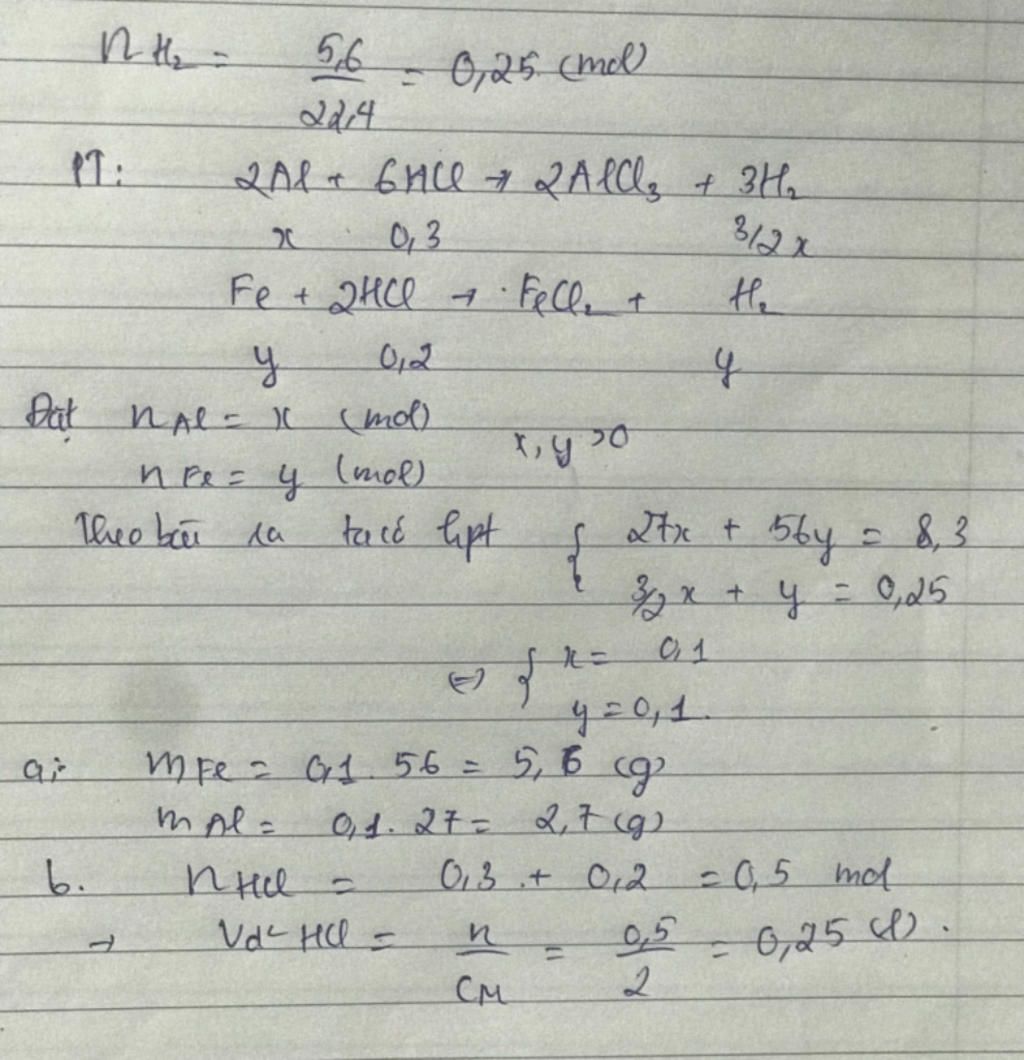 nH₂ = 5,6/22,4 = 0,25 (mol)
PT: 2Al + 6HCl → 2AlCl₃ + 3H₂
x 0,3 3/2x
Fe + 2HCl → FeCl₂ + H₂
y 0,2 y
Đặt nAl = x (mol)
x, y >0
nFe = y (mol)
Theo bài ra ta có hpt { 27x + 56y = 8,3
3/2x + y = 0,25
⇔ { x = 0,1
y = 0,1.
a, mFe = 0,1 . 56 = 5,6 (g)
mAl = 0,1. 27 = 2,7 (g)
b. nHCl = 0,3 + 0,2 = 0,5 mol
→ Vd² HCl = n/CM = 0,5/2 = 0,25 (l).